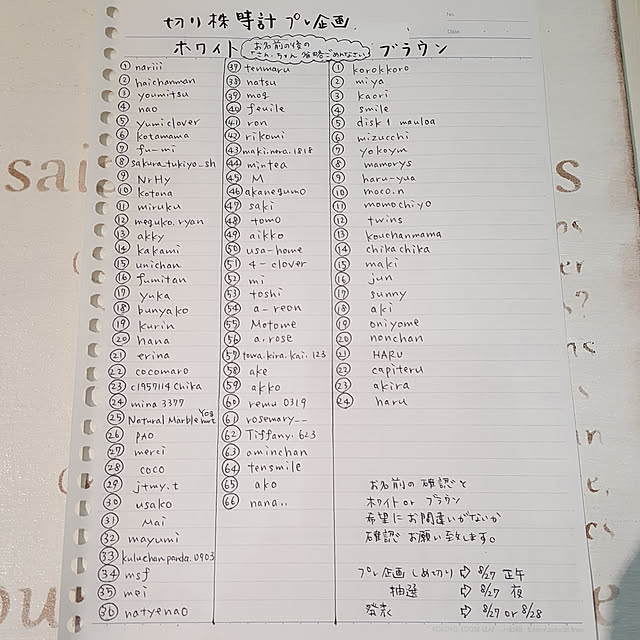 切り株時計プレ企画
ホワイト
お名前の後の
"さん・ちゃん"省略ごめんなさい
ブラウン
① nariii
② haichanman
③ youmitsu
④ nao
⑤ yumiclover
⑥ kotamama
⑦ fu-mi
⑧ sakura_tukiyo_sh
⑨ NrHy
⑩ kotona
⑪ miruku
⑫ meguko.ryan
⑬ akky
⑭ kakami
⑮ unichan
⑯ fumitan
⑰ yuka
⑱ bunyako
⑲ kurin
⑳ hana
㉑ erina
㉒ cocomaro
㉓ c1957114chika
㉔ mina3377
㉕ Natural Marble
㉖ pao
㉗ merci
㉘ coco
㉙ jtmy.t
㉚ usako
㉛ mai
㉜ mayumi
㉝ kuluchanpanda.0903
㉞ msf
㉟ mei
㊱ natyenao
㊲ tenmaru
㊳ natsu
㊴ mog
㊵ feuile
㊶ ron
㊷ rikomi
㊸ maki.nera.1818
㊹ mintea
㊺ M
㊻ akanegumo
㊼ saki
㊽ tomo
㊾ aikko
㊿ usa-home
51 4-clover
52 mi
53 toshi
54 a-reon
55 Motome
56 a.rose
57 towa.kira.kai.123
58 ake
59 akko
60 remu0319
61 rosemary__
62 Tiffany.623
63 aminchan
64 tensmile
65 ako
66 nana..
① korokkoro
② miya
③ kaori
④ smile
⑤ disk1mauloa
⑥ mizucchi
⑦ yokoym
⑧ mamorys
⑨ haru-yua
⑩ moco.n
⑪ momochiyo
⑫ twins
⑬ kouchanmama
⑭ chikachika
⑮ maki
⑯ jun
⑰ sunny
⑱ aki
⑲ oniyome
⑳ nonchan
㉑ HARU
㉒ capiteru
㉓ akira
㉔ haru
お名前の確認と
ホワイト or ブラウン
希望にお間違いがないか
確認お願い致します。
プレ企画しめ切り⇨8/27 正午
抽選⇨8/27 夜
発表⇨8/27 or 8/28
No.
Date